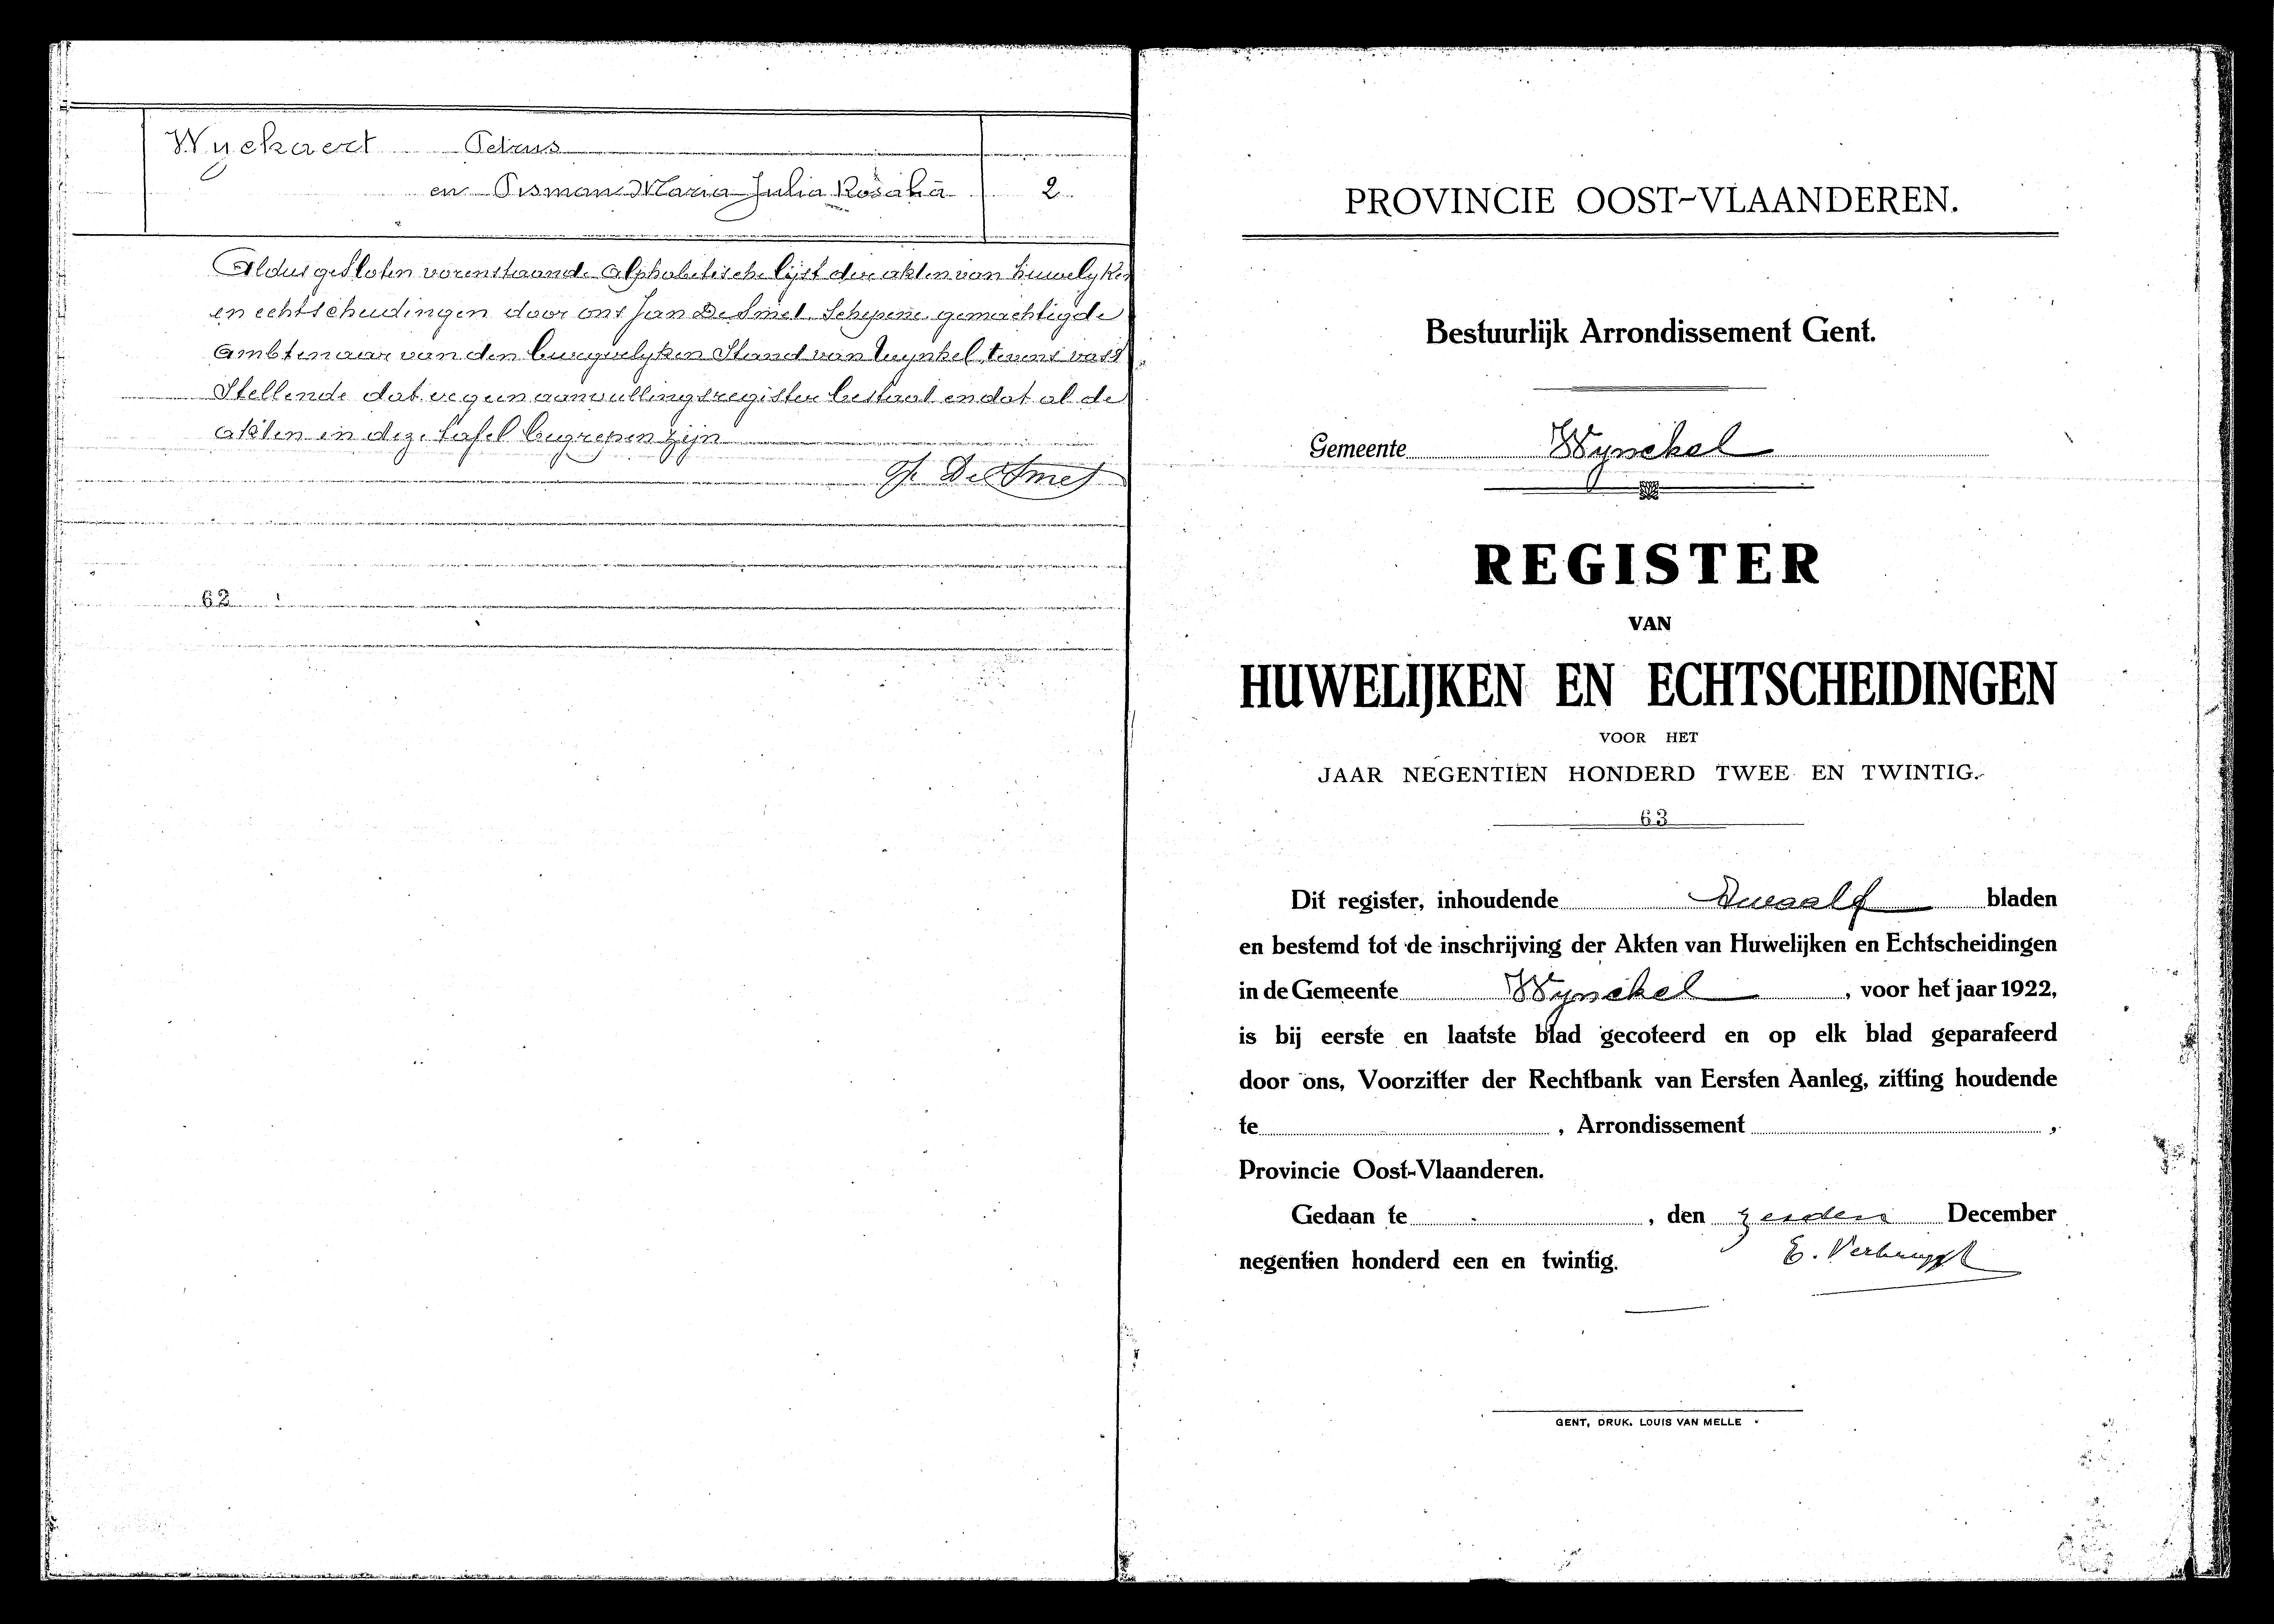 Wyckaert Petrus
en Pisman Maria Julia Rosalia 2
Aldus gesloten vorenstaande alphabetische lijst der akten van huwelyken
en echtscheidingen door ons Jan De Smet, Schepene gemachtigde
ambtenaar van den burgerlyken Stand van Wynkel, tevens vast
Stellende dat er geen aanvullingsregister bestaat en dat al de
akten in deze tafel begrepen zijn
J. De Smet
62
PROVINCIE OOST-VLAANDEREN.
Bestuurlijk Arrondissement Gent.
Gemeente Wynckel
REGISTER
VAN
HUWELIJKEN EN ECHTSCHEIDINGEN
VOOR HET
JAAR NEGENTIEN HONDERD TWEE EN TWINTIG.
63
Dit register, inhoudende twaalf bladen
en bestemd tot de inschrijving der Akten van Huwelijken en Echtscheidingen
in de Gemeente Wynckel, voor het jaar 1922,
is bij eerste en laatste blad gecoteerd en op elk blad geparafeerd
door ons, Voorzitter der Rechtbank van Eersten Aanleg, zitting houdende
te , Arrondissement ,
Provincie Oost-Vlaanderen.
Gedaan te , den zesden December
negentien honderd een en twintig. E.
GENT, DRUK. LOUIS VAN MELLE